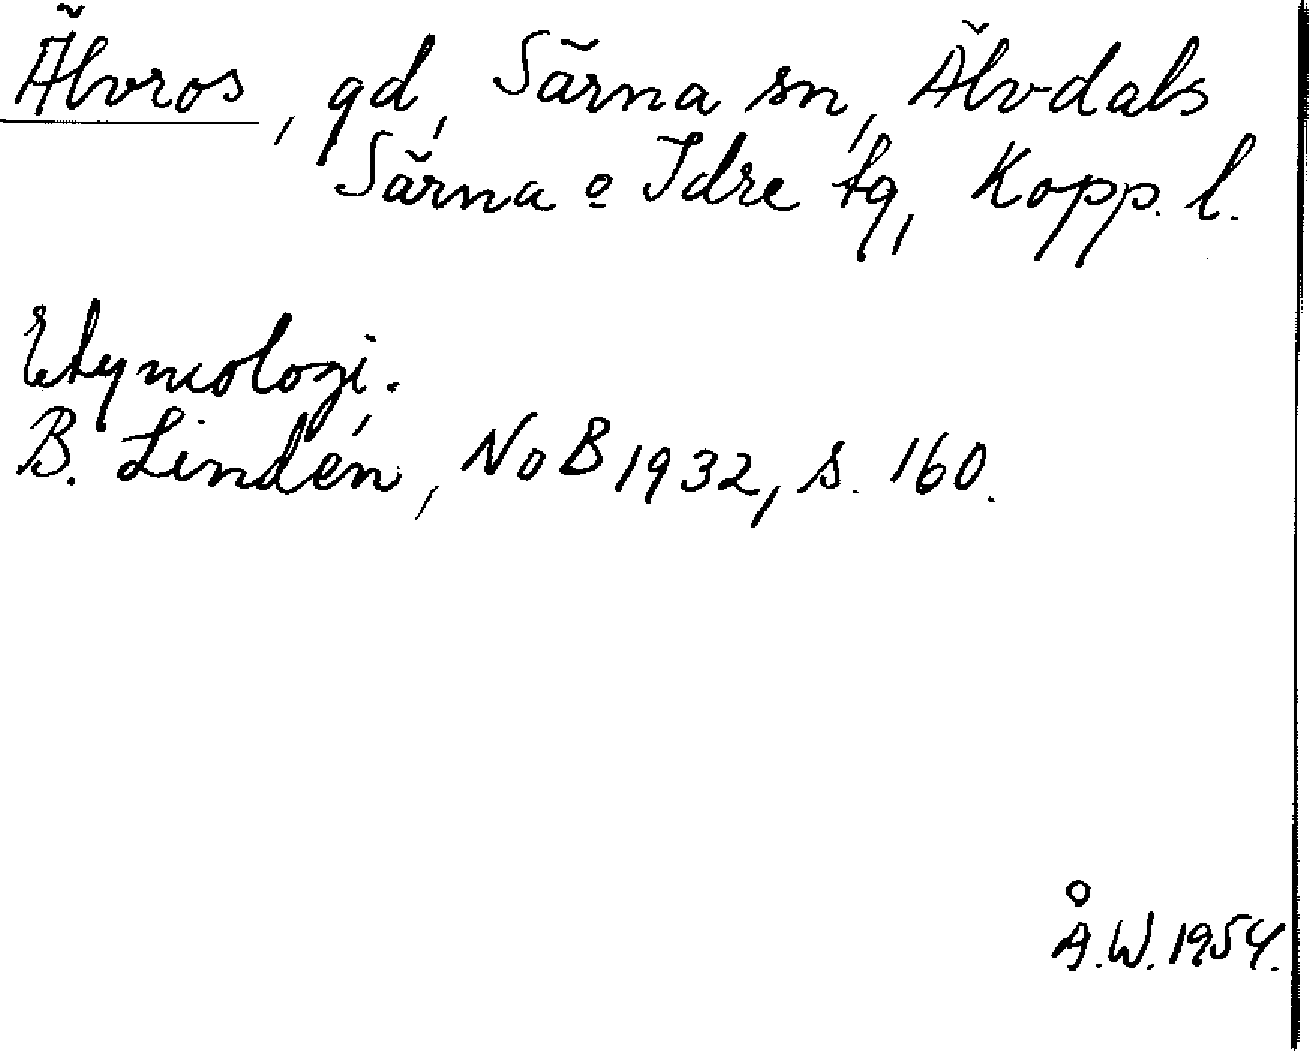 Älvros, gd, Särna sn, Älvdals
Särna o Idre tg, Kopp. l.
Etymologi.
B. Lindén, NoB 1932, s. 160.
Å.W. 1954.